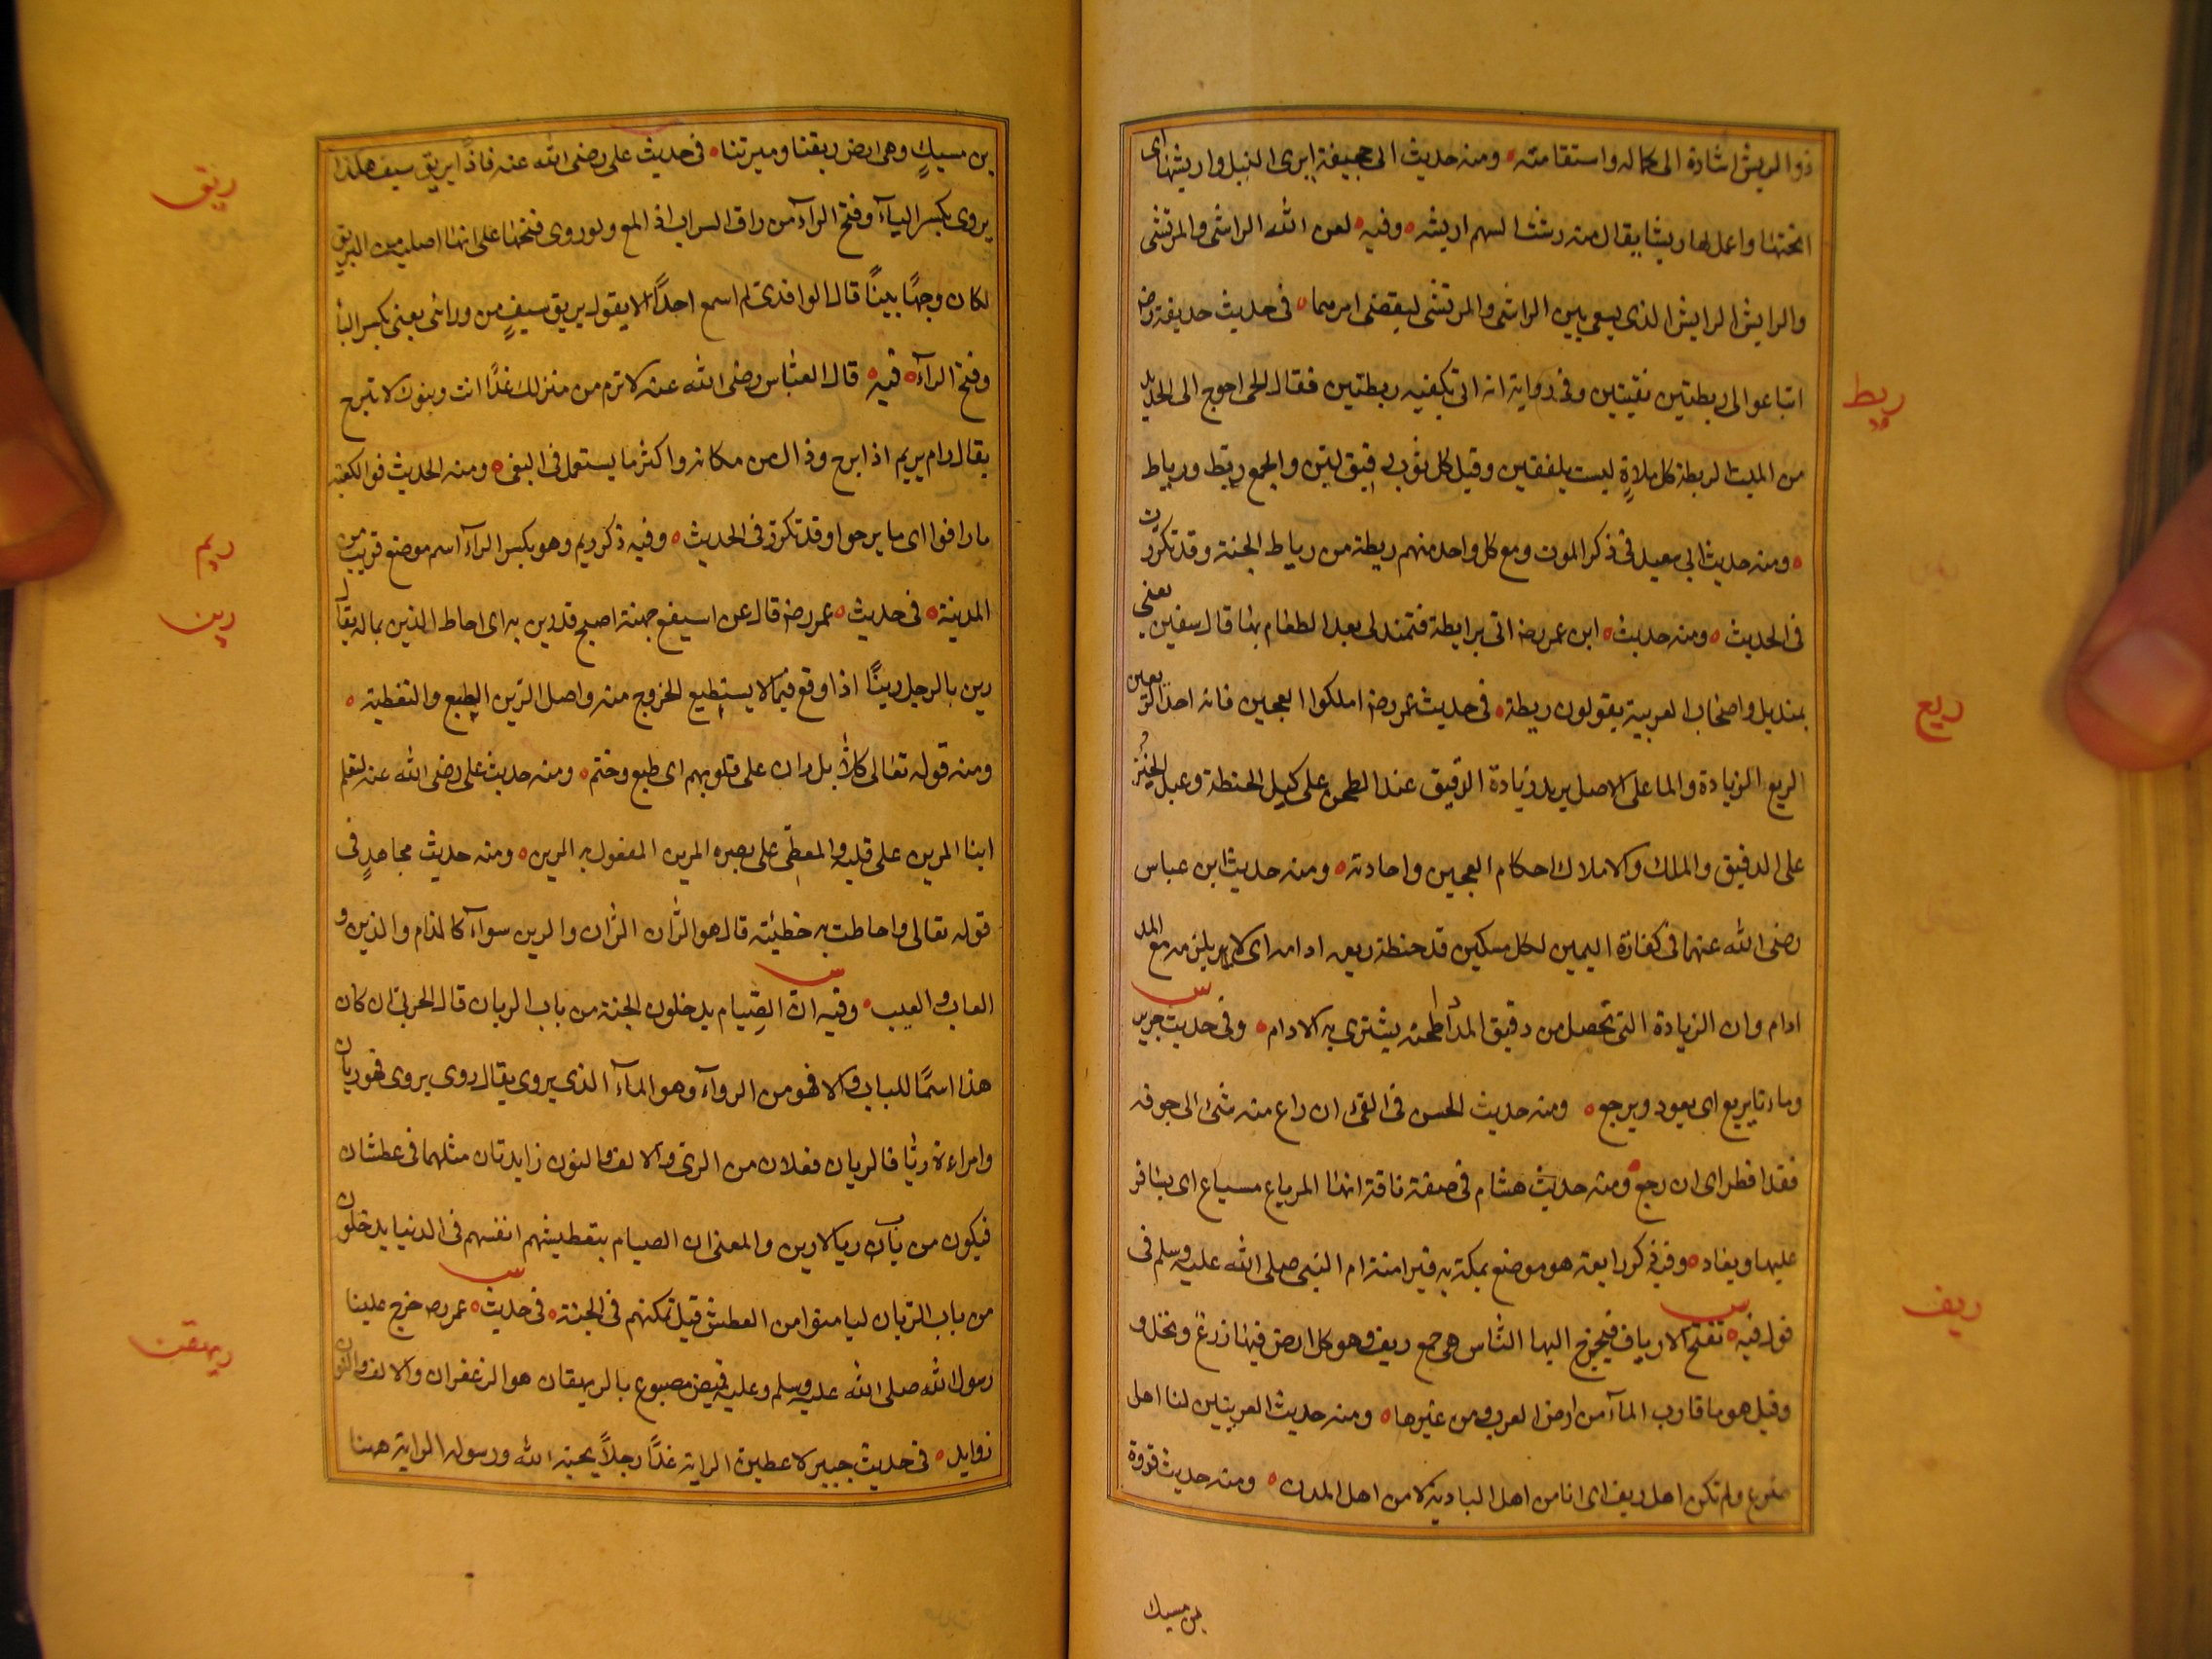 ذو الريش اشارة الى كماله واستقامته ومنه حديث ابى جحيفة ابرى النبل واريشها اى
انحتها واعمل لها ريشا يقال منه رشت السهم اريشه وفيه لعن الله الراشى والمرتشى
والرايش الرايش الذى يسعى بين الراشى والمرتشى ليقضى امرهما فى حديث حذيفة رضـ
ريط
ابتاعوا لى ريطتين نقيتين وفى رواية انه اتى بكفنه ريطتين فقال الحى احوج الى الجديد
من الميت الريطة كل ملاة ليست بلفقين وقيل كل ثوب رقيق لين والجمع ريط ورياط
ومنه حديث ابى سعيد فى ذكر الموت ومع كل واحد منهم ريطة من رياط الجنة وقد تكررت
فى الحديث ومنه حديث ابن عمر رضـ اتى برايطة فتمندل بعد الطعام بها قال سفين يعنى
ريع
بمنديل واصحاب العربية يقولون ريطة فى حديث عمر رضـ املكوا العجين فانه احد الريعين
الريع الزيادة والنما على الاصل يريد زيادة الدقيق عند الطحن على كيل الحنطة وعند الخبز
على الدقيق والملك والاملاك احكام العجين واجادته ومنه حديث ابن عباس
رضى الله عنهما فى كفارة اليمين لكل مسكين مد حنطة ريعه ادامه اى لا يلزمه مع المد
ادام وان الزيادة التى تحصل من دقيق المد اذا طحنه يشترى به الادام وفى حديث جرير
وماءنا يريع اى يعود ويرجع ومنه حديث الحسن فى القئ ان راع منه شئ الى جوفه
فقد افطر اى ان رجع ومنه حديث هشام فى صفة ناقة انها المرياع مسياع اى يسافر
عليها ويعاد وفيه ذكر رايعة هو موضع بمكة به قبر امنة ام النبى صلى الله عليه وسلم فى
ريف
قول فيه تفتح الارياف فيخرج اليها الناس هى جمع ريف وهو كل ارض فيها زرع ونخل و
وقيل هو ما قارب الماء من ارض العرب ومن غيرها ومنه حديث العرنيين كنا اهل
ضرع ولم نكن اهل ريف اى انا من اهل البادية لا من اهل المدن ومنه حديث فروة
بن مسيك
بن مسيك وهى ارض ريفنا وميرتنا فى حديث على رضى الله عنه فاذا بريق سيف هكذا
ريق
يروى بكسر الباء وفتح الراء من راق السراب اذا لمع ولو روى فتحها على انها اصلية من البريق
لكان وجها بينا قال الواقدى لم اسمع احدا الا يقول بريق سيف من ورائى يعنى بكسر البا
وفتح الراء فيه قال العباس رضى الله عنه لا ترم من منزلك غدا انت وبنوك لا تبرح
يقال رام يريم اذا برح وزال من مكانه واكثر ما يستعمل فى النفى ومنه الحديث فو الكعبة
ريم
ما راموا اى ما برحوا وقد تكرر فى الحديث وفيه ذكر ريم وهو بكسر الراء اسم موضع قريب من
رين
المدينة فى حديث عمر رضـ قال عن اسيفع جهنة اصبح قد رين به اى احاط الدين بماله يقال
رين بالرجل رينا اذا وقع فيما لا يستطيع الخروج منه واصل الرين الطبع والتغطية
ومنه قوله تعالى كلا بل ران على قلوبهم اى طبع وختم ومنه حديث على رضى الله عنه لتعلم
اينا المرين على قلبه والمغطى على بصره المرين المفعول به الرين ومنه حديث مجاهد فى
قوله تعالى واحاطت به خطيئته قال هو الران الران والرين سواء كالذام والذين و
العاب والعيب وفيه ان الصيام يدخلون الجنة من باب الريان قال الحربى ان كان
هذا اسما للباب والا فهو من الرواء وهو الماء الذى يروى يقال روى يروى فهو ريان
وامراءة ريا فالريان فعلان من الرى والالف والنون زايدتان مثلهما فى عطشان
فيكون من باب ريا لا رين والمعنى ان الصيام بتعطيشهم انفسهم فى الدنيا يدخلون
من باب الريان ليامنوا من العطش قبل تمكنهم فى الجنة فى حديث عمر رضـ خرج علينا
ريهقن
رسول الله صلى الله عليه وسلم وعليه قميص مصبوغ بالريهقان هو الزعفران والالف والنون
زوايد فى حديث خيبر لاعطين الراية غدا رجلا يحبه الله ورسوله الراية ههنا